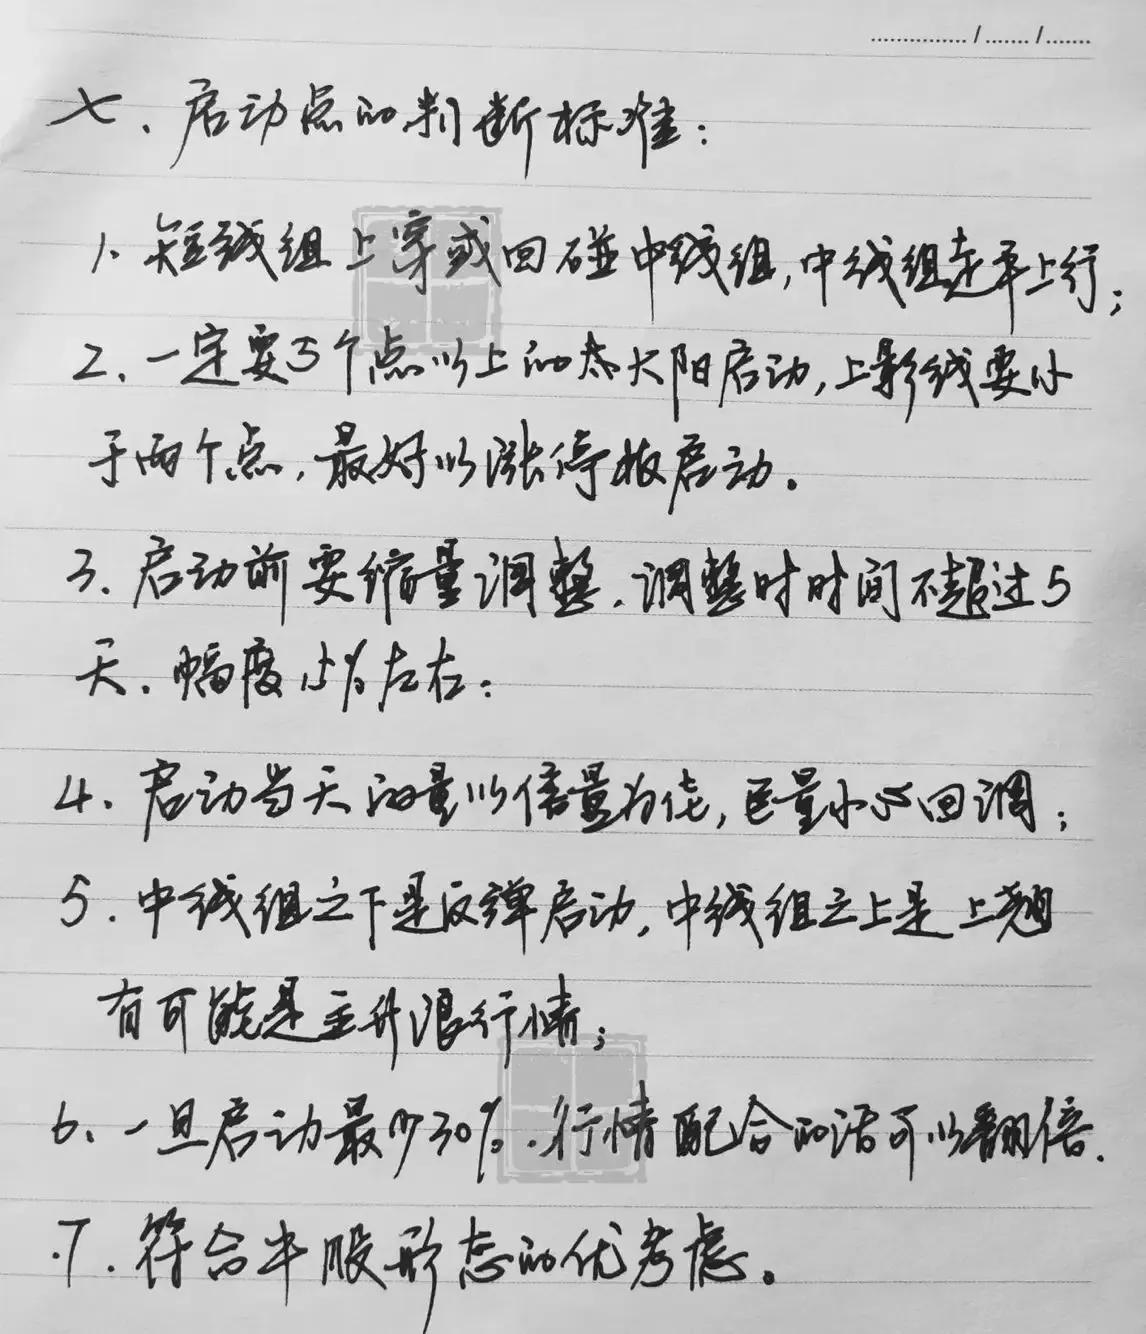 七、启动点的判断标准：
1、短线组上穿或回碰中线组，中线组走平上行；
2、一定要5个点以上的太大阳启动，上影线要小
于两个点，最好以涨停板启动。
3、启动前要缩量调整，调整时时间不超过5
天、幅度15%左右；
4、启动当天的量以倍量为佳，巨量小心回调；
5、中线组之下是反弹启动，中线组之上是上翘
有可能是主升浪行情；
6、一旦启动最少30%，行情配合的话可以翻倍.
7、符合牛股形态的优考虑。